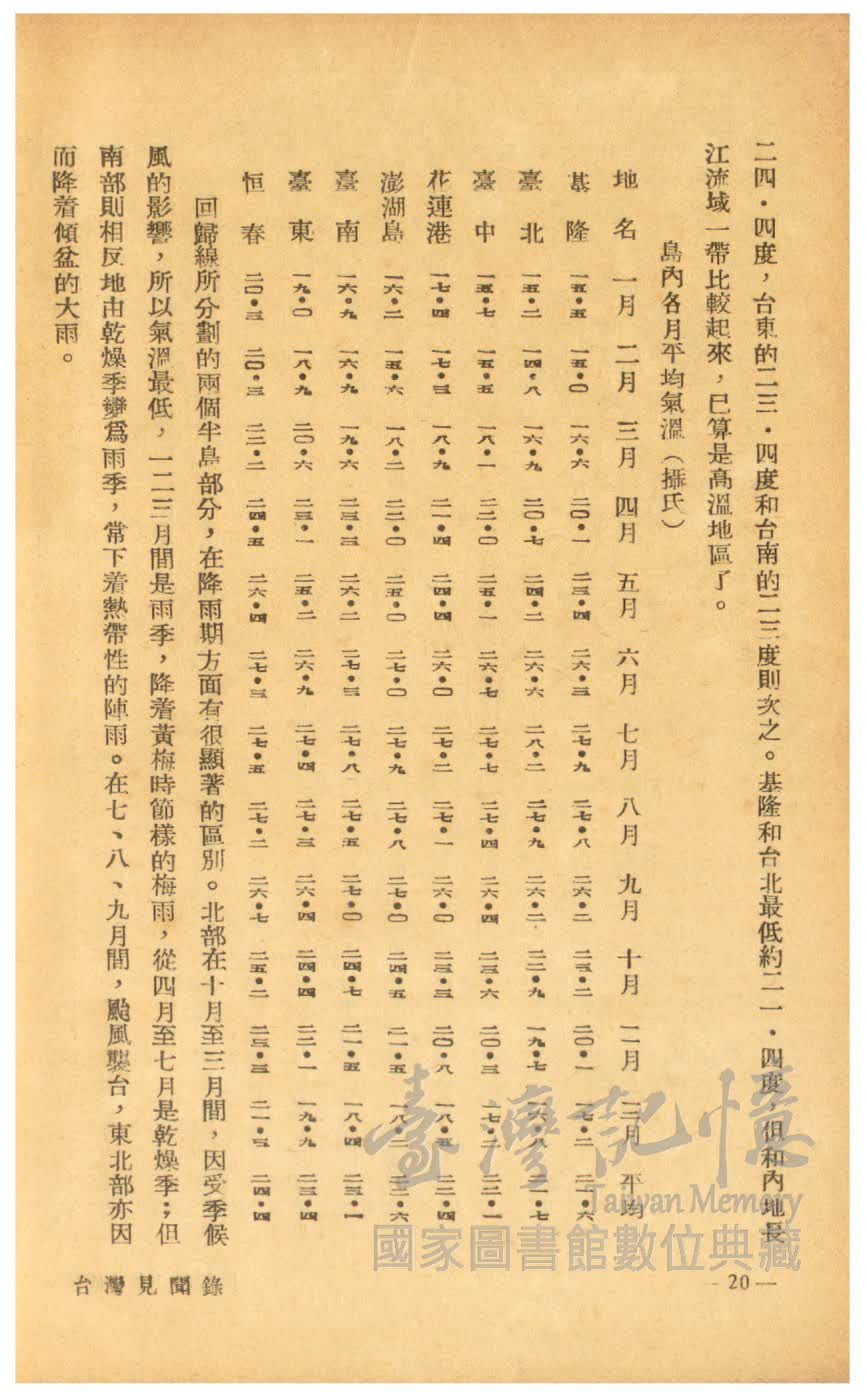 二四・四度，台東的二三・四度和台南的二三度則次之。基隆和台北最低約二一・四度，但和內地長
江流域一帶比較起來，已算是高溫地區了。
島內各月平均氣溫（攝氏）
地名 一月 二月 三月 四月 五月 六月 七月 八月 九月 十月 十一月 十二月 平均
基隆 一五・五 一五・〇 一六・六 二〇・一 二三・四 二六・三 二七・九 二七・八 二六・二 二三・二 二〇・一 一七・二 二一・六
臺北 一五・二 一四・八 一六・九 二〇・七 二四・二 二六・六 二八・二 二七・九 二六・二 二二・九 一九・七 一六・八 二一・七
臺中 一五・七 一五・五 一八・一 二二・〇 二五・一 二六・七 二七・七 二七・四 二六・四 二三・六 二〇・三 一七・二 二二・一
花連港 一七・四 一七・三 一八・九 二一・四 二四・四 二六・〇 二七・二 二七・一 二六・〇 二三・三 二〇・八 一八・五 二二・四
澎湖島 一六・二 一五・六 一八・二 二二・〇 二五・〇 二七・〇 二七・九 二七・八 二七・〇 二四・五 二一・五 一八・二 二二・六
臺南 一六・九 一六・九 一九・六 二三・三 二六・二 二七・三 二七・八 二七・五 二七・〇 二四・七 二一・五 一八・四 二三・一
臺東 一九・〇 一八・九 二〇・六 二三・一 二五・二 二六・九 二七・四 二七・三 二六・四 二四・四 二二・一 一九・九 二三・四
恒春 二〇・三 二〇・三 二二・二 二四・五 二六・四 二七・三 二七・五 二七・二 二六・七 二五・二 二三・三 二一・三 二四・四
回歸線所分劃的兩個半島部分，在降雨期方面有很顯著的區別。北部在十月至三月間，因受季候
風的影響，所以氣溫最低，一二三月間是雨季，降着黃梅時節樣的梅雨，從四月至七月是乾燥季；但
南部則相反地由乾燥季變爲雨季，常下着熱帶性的陣雨。在七、八、九月間，颱風襲台，東北部亦因
而降着傾盆的大雨。
台灣見聞錄
—20—
臺灣記憶
Taiwan Memory
國家圖書館數位典藏